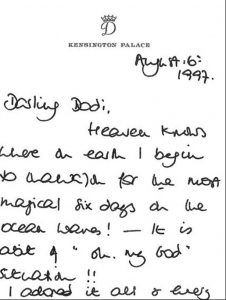 D
KENSINGTON PALACE
August. 6th
1997.
Darling Dodi,
Heaven Knows
where on earth I begin
to thank you for the most
magical six days on the
ocean waves! – It is
a bit of a "oh. my God"
situation!!
I adored it all & every